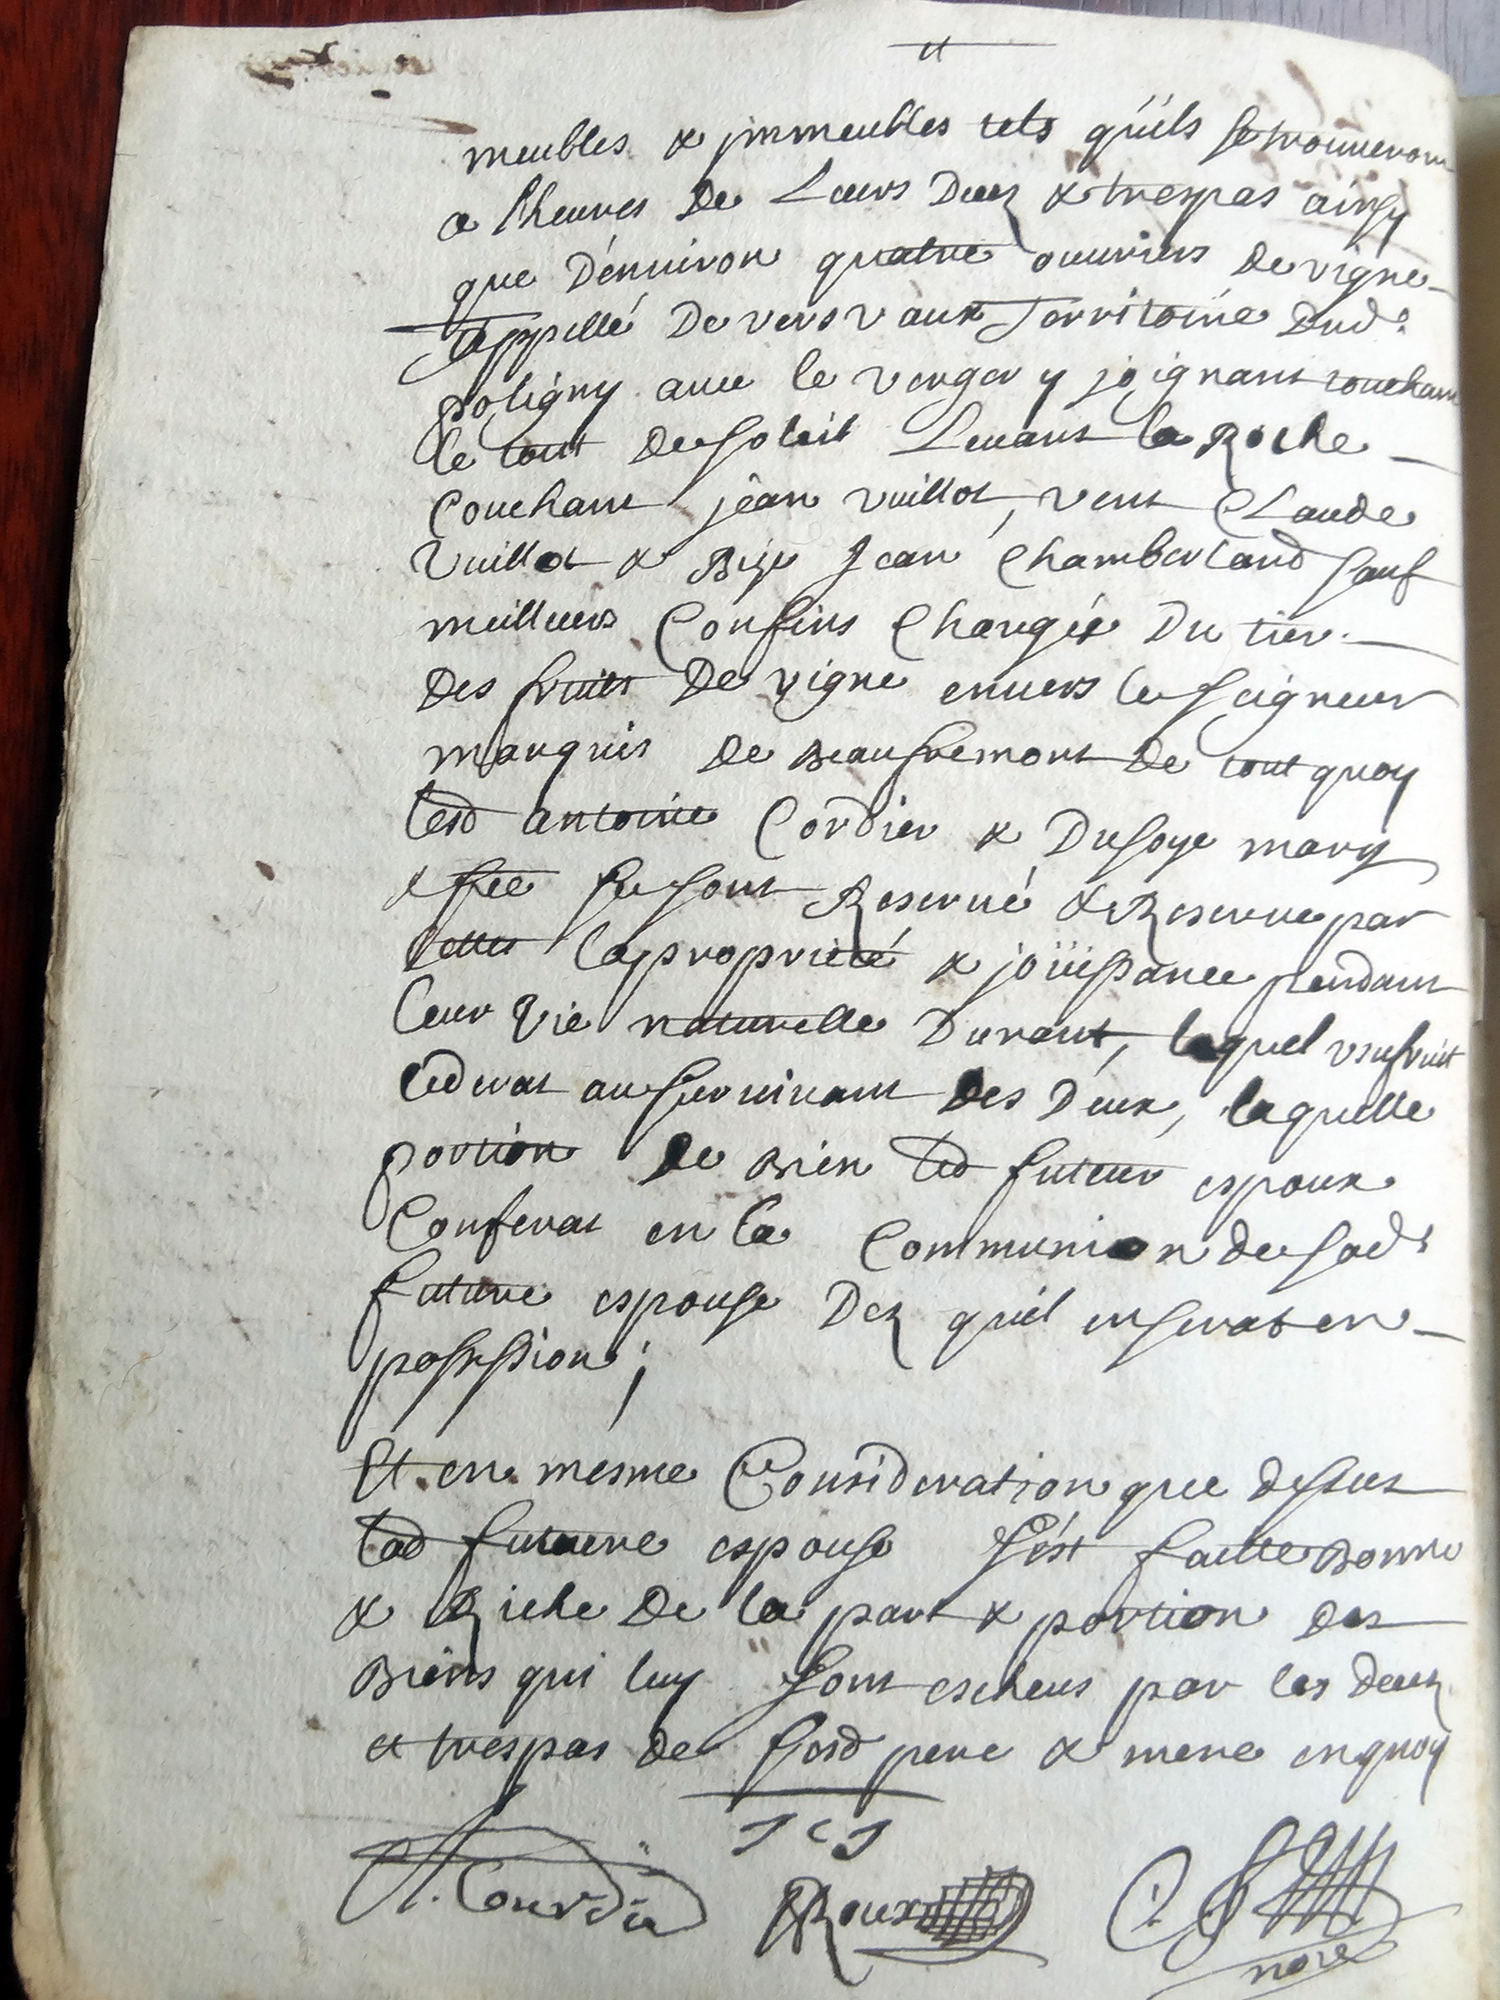 meubles & jmmeubles tels qu'ils se trouueront
a lheures de Leurs Deces & trespas ainsy
que D'enuiron quatre ouuriers de vigne
appellé De vers vaux Territoire Dud.
poligny auec le verger y joignant touchant
le tout de soleil Leuant la Roche
Couchant jean vuillot, vent Claude
Vuillot & Bize Jean Chamberland sauf
meilleurs Confins Chargéé Du tier
Des fruits De vigne enuers le Seigneur
marquis De Beaufremont de tout quoy
lesd antoine Cordier & Dusoye mary
& fee se sont Reserué & Reserue par
cettes la proprieté & joüissance pendant
leur vie naturelle Durant, laquel vsufruit
cederat au suruiuant des Deux, laquelle
portion de Bien led futeur espoux
Conferat en la Communion de sad.
future espouse Dez qu'il enserat en
possession;
Et en mesme Consideration que dessus
lad futeure espouse s'est faitte Bonne
& Riche De la part & portion des
Biens qui luy sont escheus par les deces
et trespas de sesd pere & mere en quoy
A. Courdier
Roux
nore